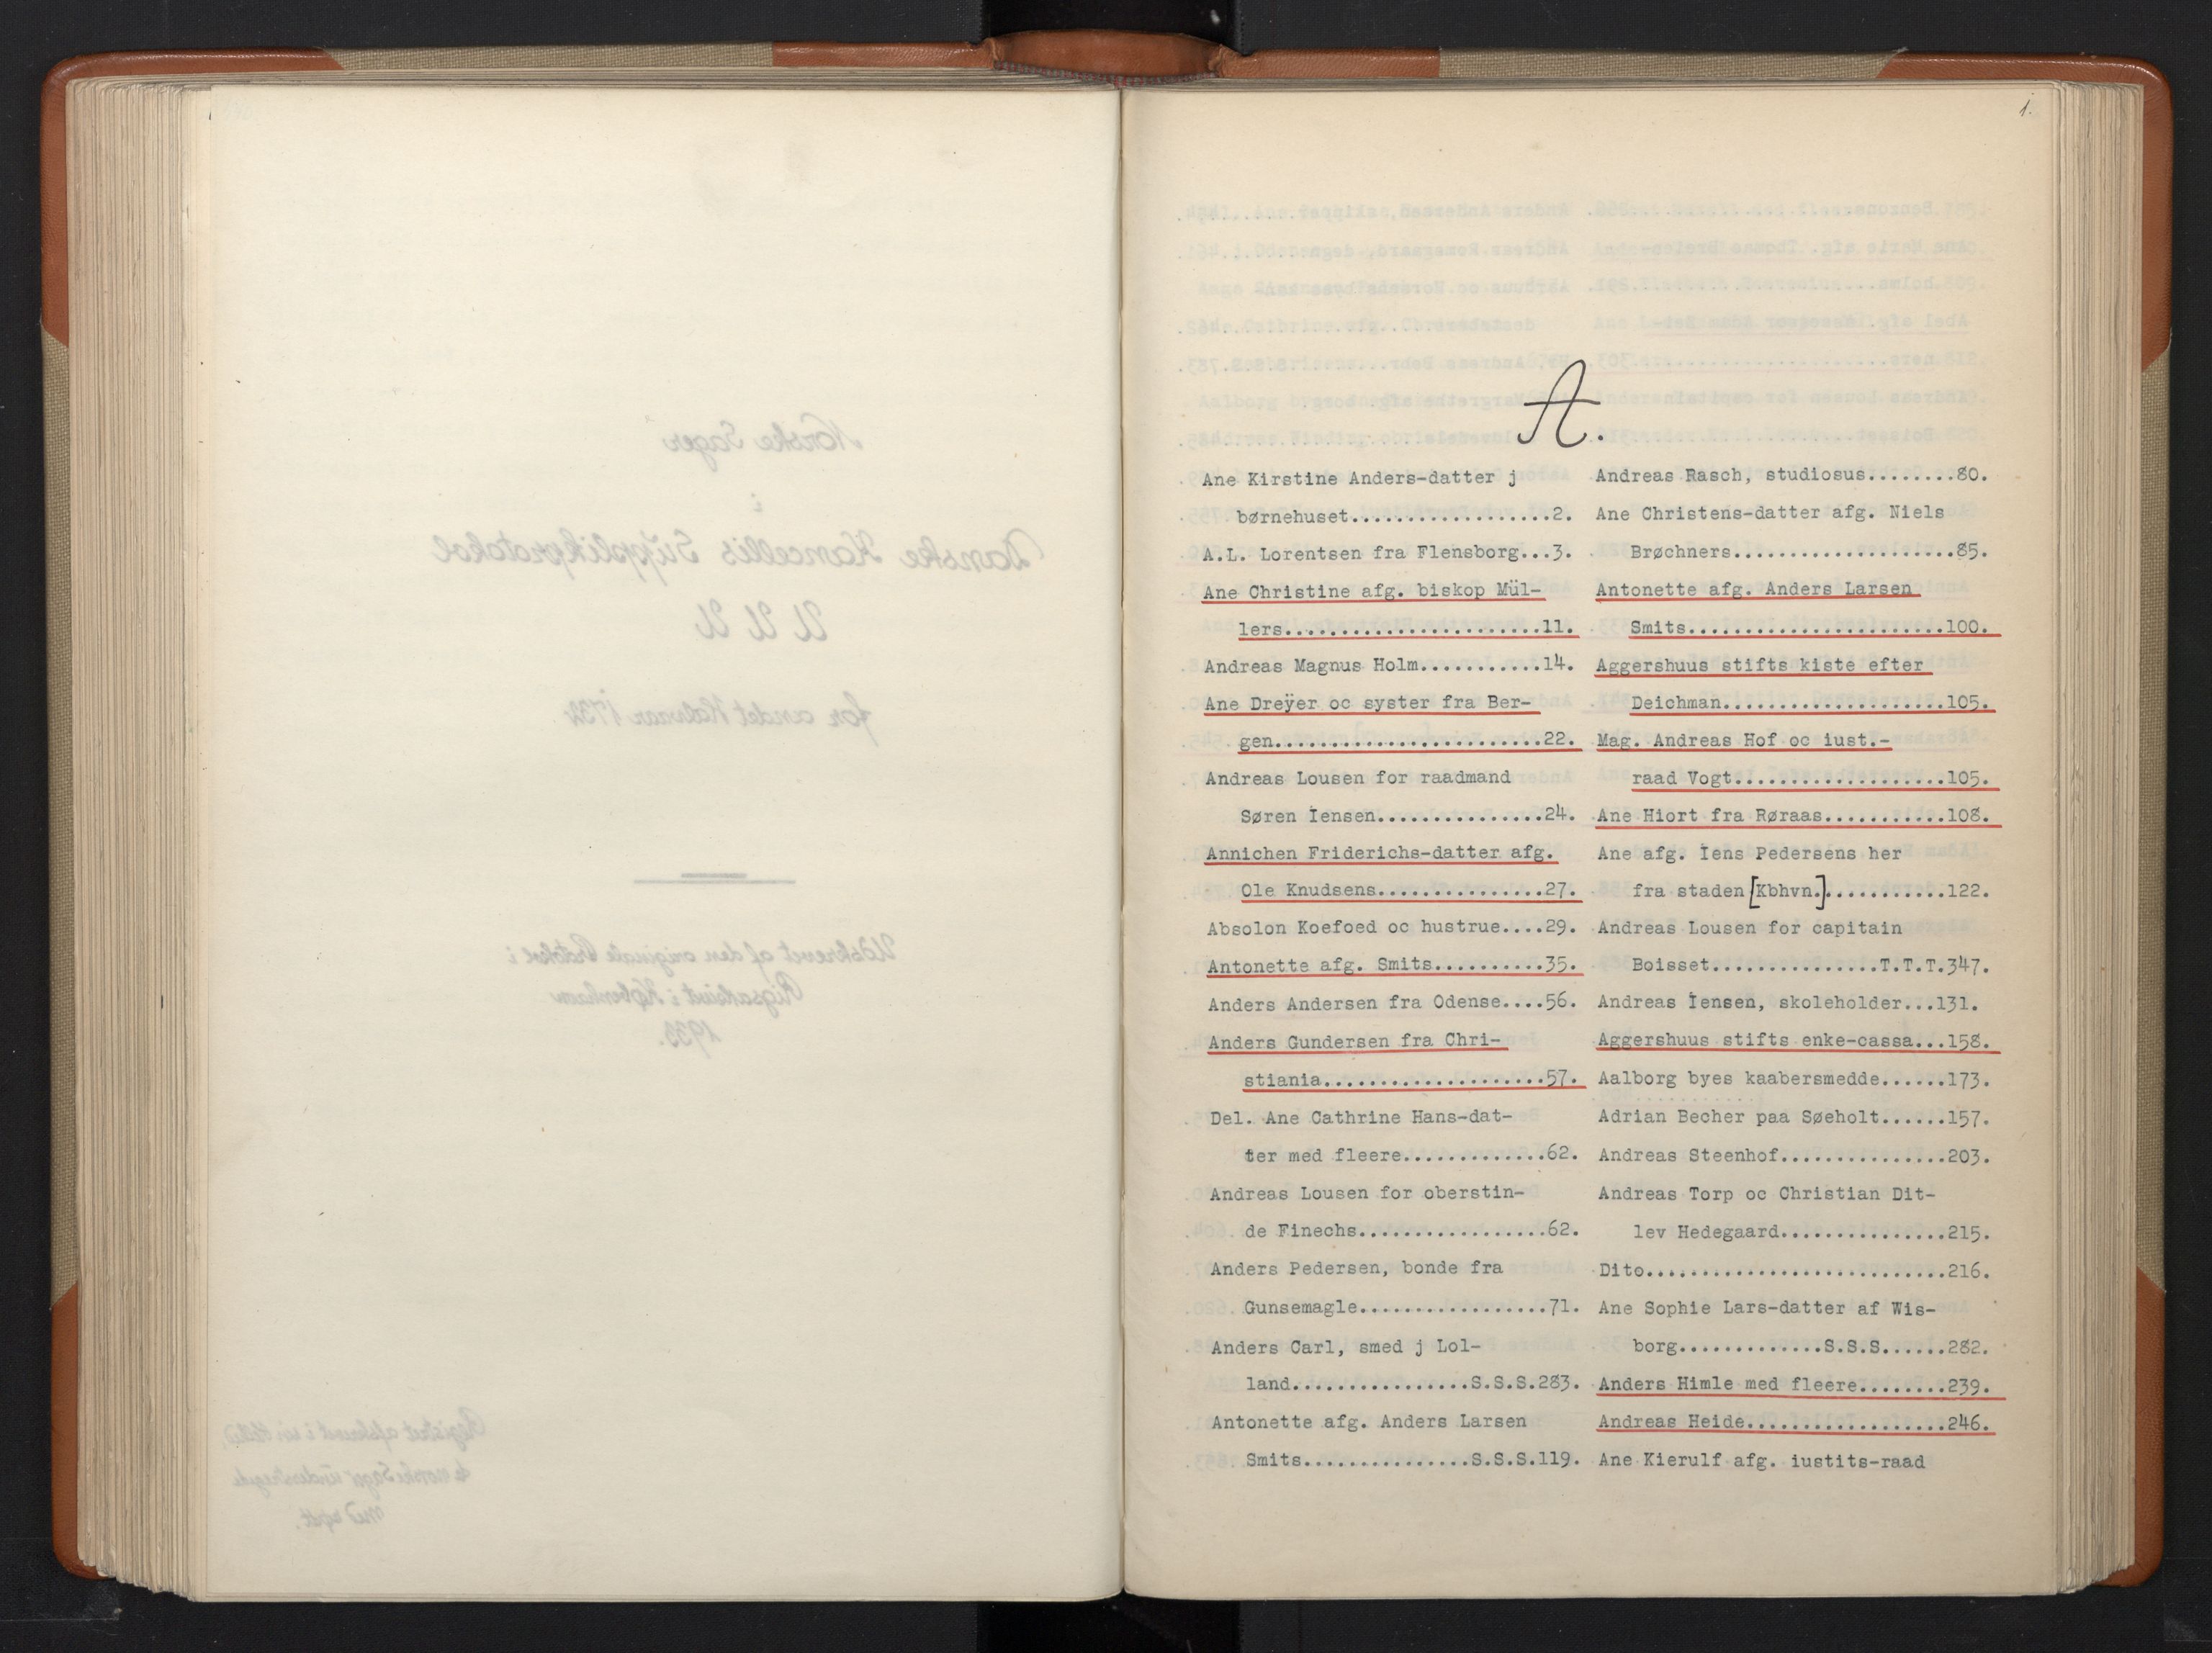 1.
A.
Ane Kirstine Anders-datter j
børnehuset..................2.
A.L. Lorentsen fra Flensborg...3.
Ane Christine afg. biskop Mül-
lers.......................11.
Andreas Magnus Holm...........14.
Ane Dreÿer oc syster fra Ber-
gen........................22.
Andreas Lousen for raadmand
Søren Iensen...............24.
Annichen Friderichs-datter afg.
Ole Knudsens...............27.
Absolon Koefoed oc hustrue....29.
Antonette afg. Smits..........35.
Anders Andersen fra Odense....56.
Anders Gundersen fra Chri-
stiania....................57.
Del. Ane Cathrine Hans-dat-
ter med fleere.............62.
Andreas Lousen for oberstin-
de Finechs.................62.
Anders Pedersen, bonde fra
Gunsemagle.................71.
Anders Carl, smed j Lol-
land................S.S.S.283.
Antonette afg. Anders Larsen
Smits...............S.S.S.119.
Andreas Rasch, studiosus........80.
Ane Christens-datter afg. Niels
Brøchners....................85.
Antonette afg. Anders Larsen
Smits.......................100.
Aggershuus stifts kiste efter
Deichman....................105.
Mag. Andreas Hof oc iust.-
raad Vogt...................105.
Ane Hiort fra Røraas...........108.
Ane afg. Iens Pedersens her
fra staden [Kbhvn.]...........122.
Andreas Lousen for capitain
Boisset...............T.T.T.347.
Andreas Iensen, skoleholder...131.
Aggershuus stifts enke-cassa...158.
Aalborg byes kaabersmedde......173.
Adrian Becher paa Søeholt......157.
Andreas Steenhof...............203.
Andreas Torp oc Christian Dit-
lev Hedegaard...............215.
Dito...........................216.
Ane Sophie Lars-datter af Wis-
borg.............S.S.S......282.
Anders Himle med fleere........239.
Andreas Heide..................246.
Ane Kierulf afg. iustits-raad